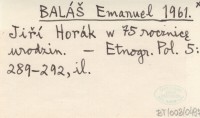 BALÁŠ Emanuel 1961.
Jiří Horák w 75 rocznicę
urodzin. – Etnogr. Pol. 5:
289-292, il.